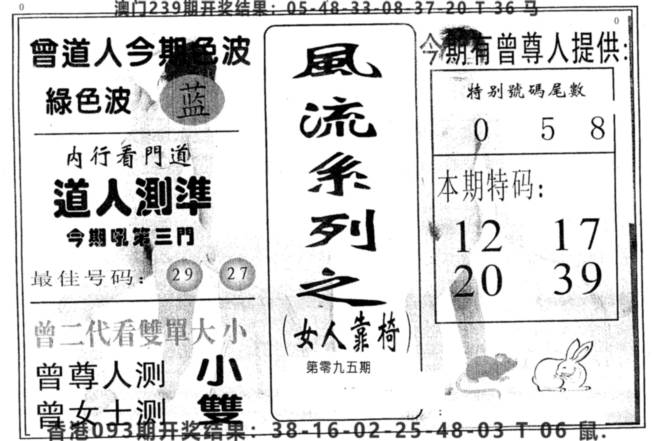 澳门239期开奖结果：05-48-33-08-37-20 T 36 马
曾道人今期色波
綠色波 蓝
内行看門道
道人測準
今期吼第三門
最佳号码： 29 27
曾二代看雙單大小
曾尊人测 小
曾女士测 雙
風流系列之
(女人靠椅)
第零九五期
今期有曾尊人提供:
特别號碼尾數
0 5 8
本期特码:
12 17
20 39
香港093期开奖结果：38-16-02-25-48-03 T 06 鼠: